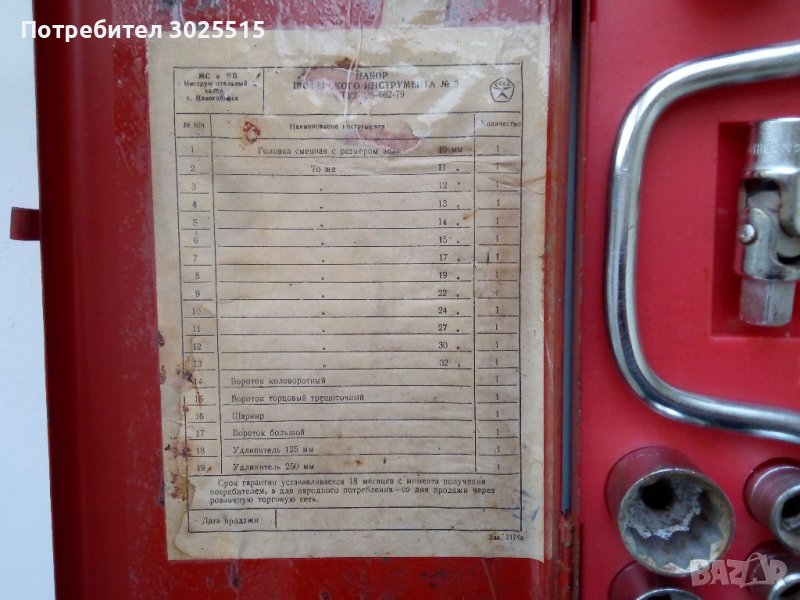 Потребител 3025515
МС и ИП
Инструментальный
завод
г. Новосибирск
НАБОР
ШОФЕРСКОГО ИНСТРУМЕНТА № 3
662-79
СССР
№ п/п Наименование инструмента Количество
1 Головка сменная с размером зева 10 мм 1
2 То же 11 „ 1
3 „ 12 „ 1
4 „ 13 „ 1
5 „ 14 „ 1
6 „ 15 „ 1
7 „ 17 „ 1
8 „ 19 „ 1
9 „ 22 „
10 „ 24 „ 1
11 „ 27 „ 1
12 „ 30 „ 1
13 „ 32 „ 1
14 Вороток коловоротный 1
15 Вороток торцовый трещоточный 1
16 Шарнир 1
17 Вороток большой 1
18 Удлинитель 125 мм 1
19 Удлинитель 250 мм 1
Срок гарантии устанавливается 18 месяцев с момента получения
потребителем, а для народного потребления—со дня продажи через
розничную торговую сеть.
Дата продажи
Зак. 2174а
BAZAR